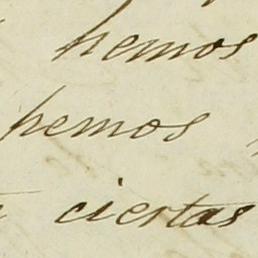 hemos
hemos
ciertas